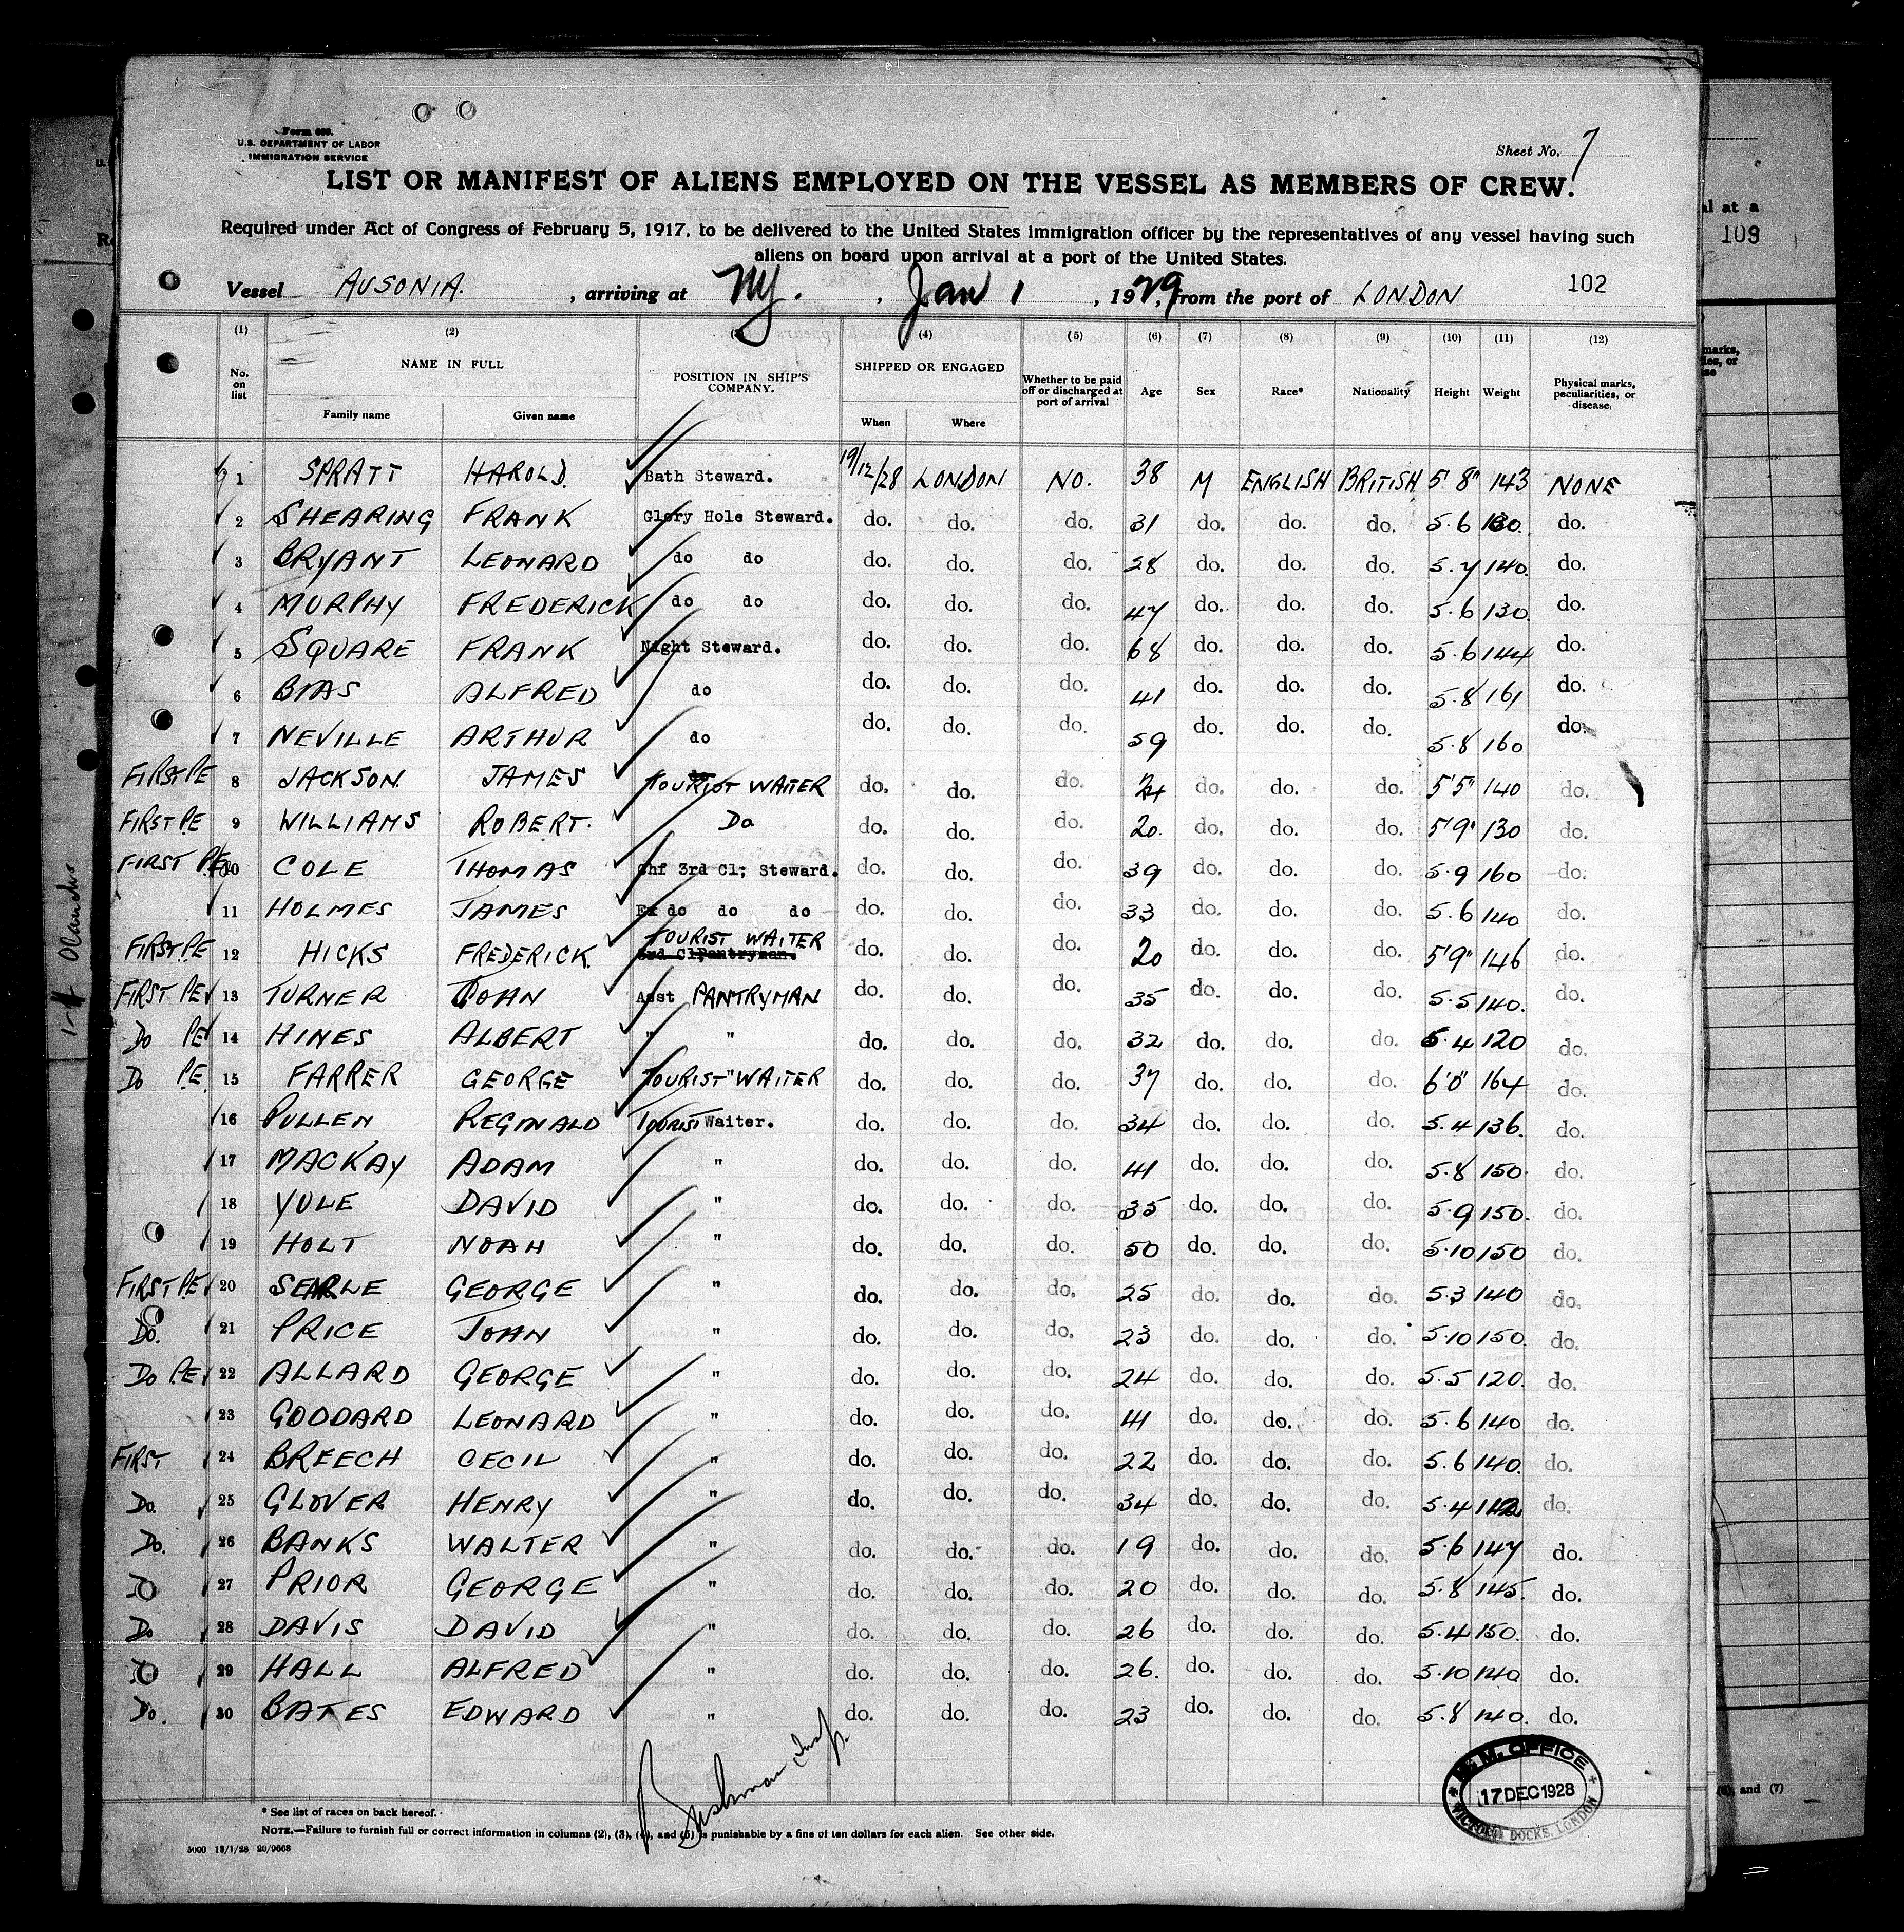 Form 680.
U.S. DEPARTMENT OF LABOR
IMMIGRATION SERVICE
Sheet No. 7
LIST OR MANIFEST OF ALIENS EMPLOYED ON THE VESSEL AS MEMBERS OF CREW.
Required under Act of Congress of February 5, 1917, to be delivered to the United States immigration officer by the representatives of any vessel having such
aliens on board upon arrival at a port of the United States.
Vessel AUSONIA. , arriving at NY. , Jan 1 , 1929, from the port of LONDON 102
(1) (2) (3) (4) (5) (6) (7) (8) (9) (10) (11) (12)
No. on list NAME IN FULL Family name Given name POSITION IN SHIP'S COMPANY. SHIPPED OR ENGAGED When Where Whether to be paid off or discharged at port of arrival Age Sex Race* Nationality Height Weight Physical marks, peculiarities, or disease.
1 SPRATT HAROLD. Bath Steward. 19/12/28 LONDON NO. 38 M ENGLISH BRITISH 5 8" 143 NONE
2 SHEARING FRANK Glory Hole Steward. do. do. do. 31 do. do. do. 5.6 130. do.
3 BRYANT LEONARD do do do. do. do. 28 do. do. do. 5.7 140. do.
4 MURPHY FREDERICK do do do. do. do. 47 do. do. do. 5.6 130. do.
5 SQUARE FRANK Night Steward. do. do. do. 68 do. do. do. 5.6 144 do.
6 BIAS ALFRED do do. do. do. 41 do. do. do. 5.8 161 do.
7 NEVILLE ARTHUR do do. do. do. 59 do. do. do. 5.8 160 do.
FIRST PE 8 JACKSON. JAMES TOURIST WAITER do. do. do. 24 do. do. do. 5'5" 140 do.
FIRST P.E 9 WILLIAMS ROBERT. Do do. do. do. 20. do. do. do. 5'9" 130 do.
FIRST P.E 10 COLE THOMAS Chf 3rd Cl; Steward. do. do. do. 39 do. do. do. 5.9 160 do.
11 HOLMES JAMES Ex do do do do. do. do. 33 do. do. do. 5.6 140 do.
FIRST P.E 12 HICKS FREDERICK. TOURIST WAITER 3rd Cl Pantryman. do. do. do. 20 do. do. do. 5'9" 146 do.
FIRST PE 13 TURNER JOHN Asst PANTRYMAN do. do. do. 35 do. do. do. 5.5 140. do.
Do PE 14 HINES ALBERT " " do. do. do. 32 do. do. do. 5.4 120 do.
Do P.E. 15 FARRER GEORGE TOURIST "WAITER do. do. do. 37 do. do. do. 6'0" 164 do.
16 PULLEN REGINALD TOURIST Waiter. do. do. do. 34 do. do. do. 5.4 136. do.
17 MACKAY ADAM " do. do. do. 41 do. do. do. 5.8 150. do.
18 YULE DAVID " do. do. do. 35 do. do. do. 5.9 150. do.
19 HOLT NOAH " do. do. do. 50 do. do. do. 5.10 150 do.
FIRST PE 20 SEARLE GEORGE " do. do. do. 25 do. do. do. 5.3 140 do.
Do. 21 PRICE JOHN " do. do. do. 23 do. do. do. 5.10 150. do.
Do P.E 22 ALLARD GEORGE " do. do. do. 24 do. do. do. 5.5 120. do.
23 GODDARD LEONARD " do. do. do. 41 do. do. do. 5.6 140 do.
FIRST 24 BREECH CECIL " do. do. do. 22 do. do. do. 5.6 140. do.
Do. 25 GLOVER HENRY " do. do. do. 34 do. do. do. 5.4 do.
Do. 26 BANKS WALTER " do. do. do. 19 do. do. do. 5.6 147 do.
Do 27 PRIOR GEORGE " do. do. do. 20 do. do. do. 5.8 145. do.
Do 28 DAVIS DAVID " do. do. do. 26 do. do. do. 5.4 150. do.
Do 29 HALL ALFRED " do. do. do. 26. do. do. do. 5.10 140 do.
Do. 30 BATES EDWARD " do. do. do. 23 do. do. do. 5.8 140. do.
M. OFFICE
17 DEC 1928
VICTORIA DOCKS, LONDON
* See list of races on back hereof.
NOTE.—Failure to furnish full or correct information in columns (2), (3), (4), and (5) is punishable by a fine of ten dollars for each alien. See other side.
5000 13/1/28 20/9668
al at a
109
marks,
and (7)